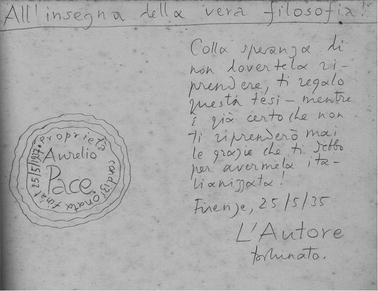 All'insegna della vera filosofia!
Colla speranza di
non dovertela ri-
prendere, ti regalo
questa tesi – mentre
è già certo che non
ti riprenderò mai
le grazie che ti debbo
per avermela ita-
lianizzata!
Firenze, 25/5/35
L'Autore
fortunato.
Proprietà condizionata
25/5/
Aurelio
Pace